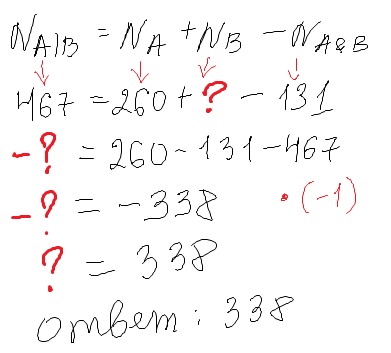 N_A|B = N_A + N_B - N_A&B
↓ ↓ ↓ ↓
467 = 260 + ? - 131
-? = 260 - 131 - 467
-? = -338 • (-1)
? = 338
ответ: 338